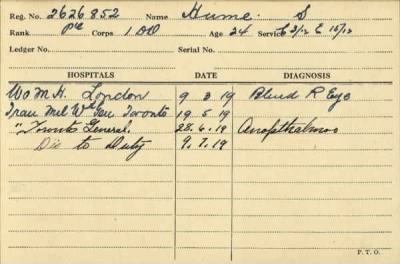 Reg. No. 2626852 Name Hume S
Rank Pte Corps 1 DD Age 24 Service C 3/12 E 15/12
Ledger No. Serial No.
HOSPITALS DATE DIAGNOSIS
London 9 3 19 Blind R Eye
Mil Toronto 19 5 19
" Toronto General. 23.6.19 Anopthalmos
Dis to Duty 9.7.19
P. T. O.